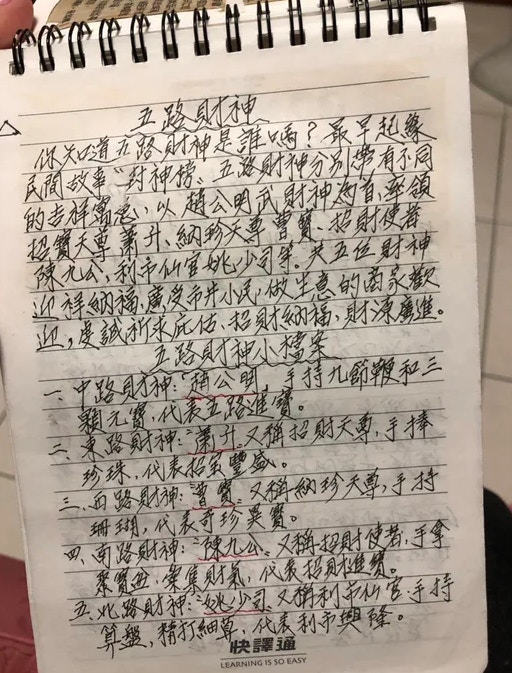 五路財神
你知道五路財神是誰嗎？最早起緣
民間故事"封神榜"、五路財神分別帶有不同
的吉祥寓意，以趙公明武財神為首，率領
招寶天尊蕭升、納珍天尊曹寶、招財使者
陳九公、利市仙官姚少司等。共五位財神
迎祥納福，廣受市井小民，做生意的商家歡
迎，虔誠祈求庇佑、招財納福，財源廣進。
五路財神小檔案
一、中路財神："趙公明"，手持九節鞭和三
顆元寶，代表五路進寶。
二、東路財神："蕭升"又稱招財天尊，手捧
珍珠，代表招寶豐盛。
三、西路財神："曹寶"又稱納珍天尊，手持
珊瑚，代表奇珍異寶。
四、南路財神："陳九公"又稱招財使者，手拿
聚寶盆，棠集財氣，代表招財進寶。
五、北路財神："姚少司"又稱利市仙官，手持
算盤，精打細算，代表利市興隆。
快譯通
LEARNING IS SO EASY